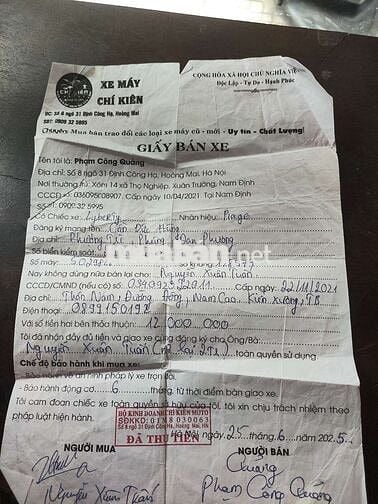 XE MÁY
CHÍ KIÊN
CHÍ KIÊN
CỘNG HÒA XÃ HỘI CHỦ NGHĨA VIỆT
Độc Lập - Tự Do - Hạnh Phúc
ĐC: Số 8 ngõ 31 Định Công Hạ, Hoàng Mai
SĐT: 0909 32 5995
Chuyên Mua bán trao đổi các loại xe máy cũ - mới - Uy tín - Chất Lượng!
GIẤY BÁN XE
Tên tôi là: Phạm Công Quảng
Địa chỉ: Số 8 ngõ 31 Định Công Hạ, Hoàng Mai, Hà Nội
Nơi thường trú: Xóm 14 xã Thọ Nghiệp, Xuân Trường, Nam Định
CCCD: 036095008907. Cấp ngày 10/04/2021. Tại Nam Định
SĐT: 0909 32 5995
Có Chiếc xe: Liberty Nhãn hiệu: Piagio
Đăng ký mang tên: Cấn Đức Hùng
Địa chỉ: Phường Đan Phượng
Biển kiểm soát:
Số máy: Số khung:
Nay không dùng nữa bán lại cho: Nguyễn Xuân Tuấn
CCCD/CMND (nếu có) số: Cấp ngày: 22/11/2021
Địa chỉ: Thôn Nam, Đường Đông, Nam Cao, Kiến Xương, TB
Điện thoại: 0899150192
Với số tiền hai bên thỏa thuận: 12.000.000
Tôi đã nhận đầy đủ tiền và giao xe cùng đăng ký cho Ông/Bà:
Nguyễn Xuân Tuấn toàn quyền sử dụng
Chế độ bảo hành khi mua xe:
- Bảo hành về an ninh pháp lý xe trọn đời.
- Bảo hành động cơ 6 tháng, từ thời điểm bán giao xe.
Tôi cam đoan chiếc xe toàn quyền sở hữu của tôi, tôi xin chịu trách nhiệm theo
pháp luật hiện hành.
HỘ KINH DOANH CHÍ KIÊN MOTO
SĐKKD: 01Y8030063
Số 8 ngõ 31 Định Công Hạ, Hoàng Mai, HN
ĐÃ THU TIỀN
Hà Nội, ngày 25 tháng 6 năm 2025
NGƯỜI MUA
NGƯỜI BÁN
Nguyễn Xuân Tuấn
Quảng
Phạm Công Quảng